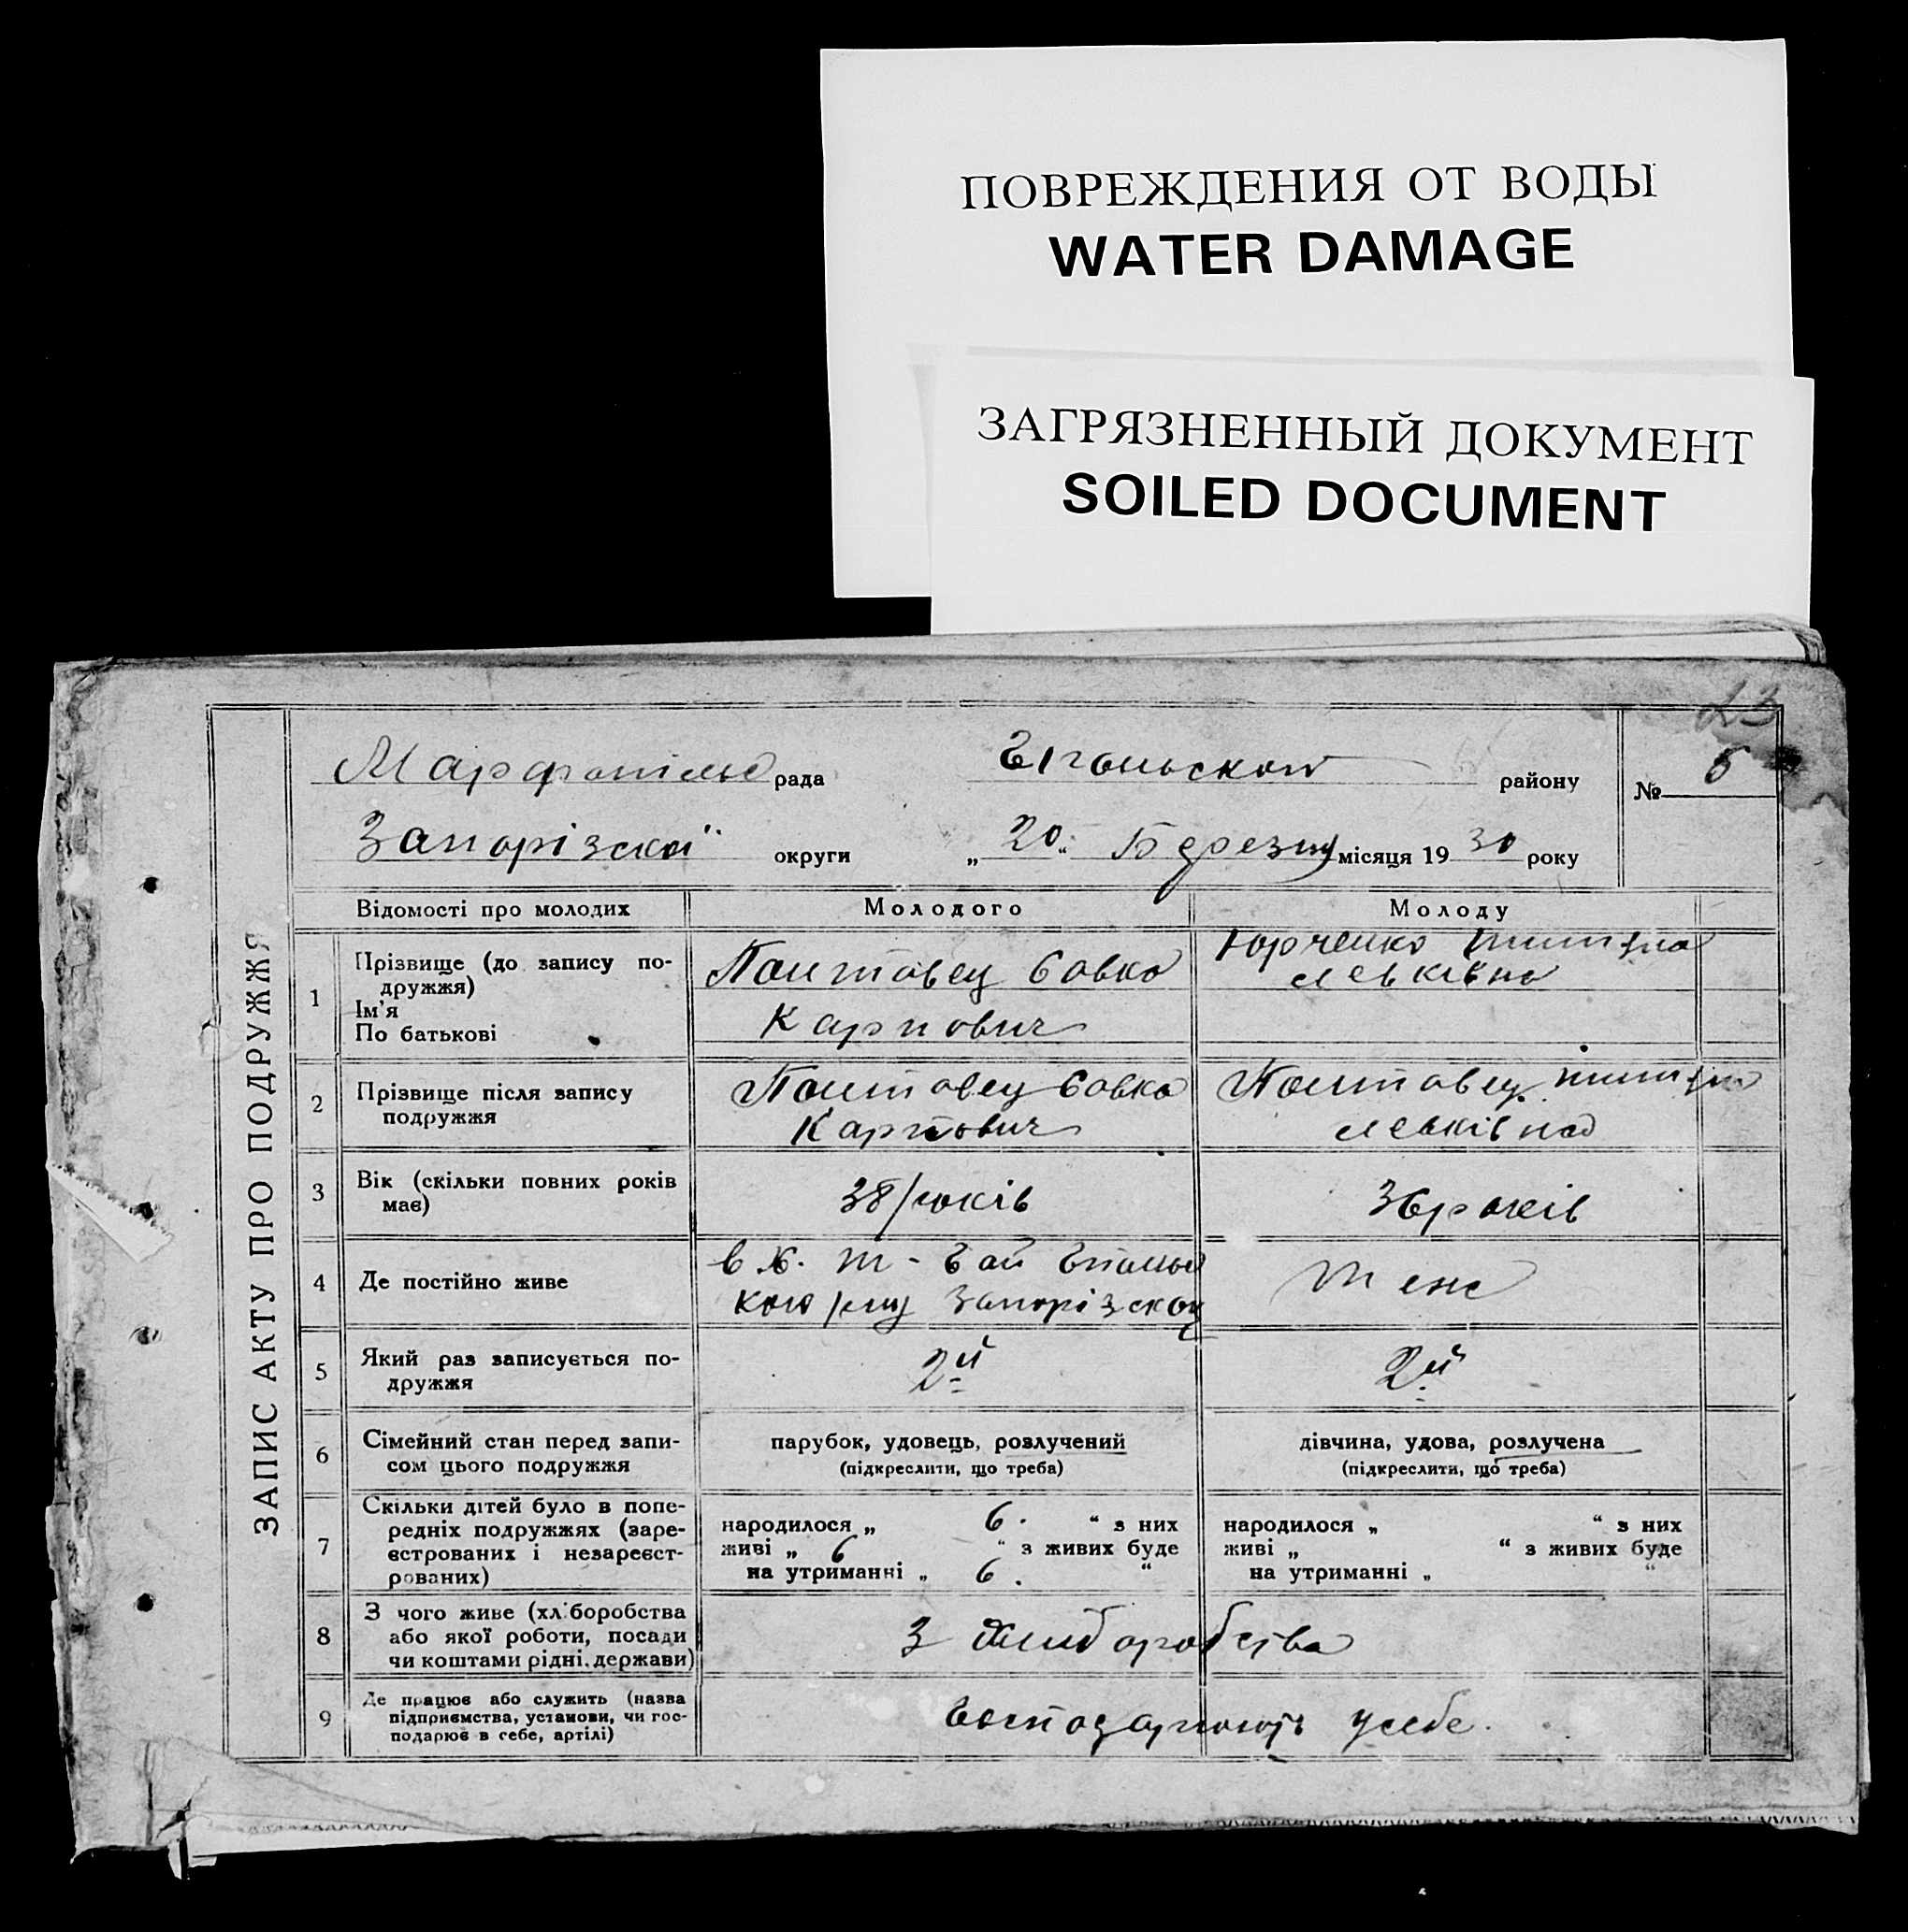 ПОВРЕЖДЕНИЯ ОТ ВОДЫ
WATER DAMAGE
ЗАГРЯЗНЕННЫЙ ДОКУМЕНТ
SOILED DOCUMENT
23
ЗАПИС АКТУ ПРО ПОДРУЖЖЯ
рада
району
№ 5
Запорізскої округи
„ 20 “ Березня місяця 19 30 року
Відомості про молодих
Молодого
Молоду
1
Прізвище (до запису по-
дружжя)
Ім'я
По батькові
Савка
Карпович
Юрченко
Левківна
2
Прізвище після запису
подружжя
Савка
Карпович
Левківна
3
Вік (скільки повних років
має)
38 років
36 років
4
Де постійно живе
5
Який раз записується по-
дружжя
2й
2й
6
Сімейний стан перед запи-
сом цього подружжя
парубок, удовець, розлучений
(підкреслити, що треба)
дівчина, удова, розлучена
(підкреслити, що треба)
7
Скільки дітей було в попе-
редніх подружжях (заре-
єстрованих і незареєст-
рованих)
народилося „ 6. “ з них
живі „ 6 “ з живих буде
на утриманні „ 6. “
народилося „ “ з них
живі „ “ з живих буде
на утриманні „ “
8
З чого живе (хліборобства
або якої роботи, посади
чи коштами рідні, держави)
З хліборобства
9
Де працює або служить (назва
підприємства, установи, чи гос-
подарює в себе, артілі)
Господарюють у себе.